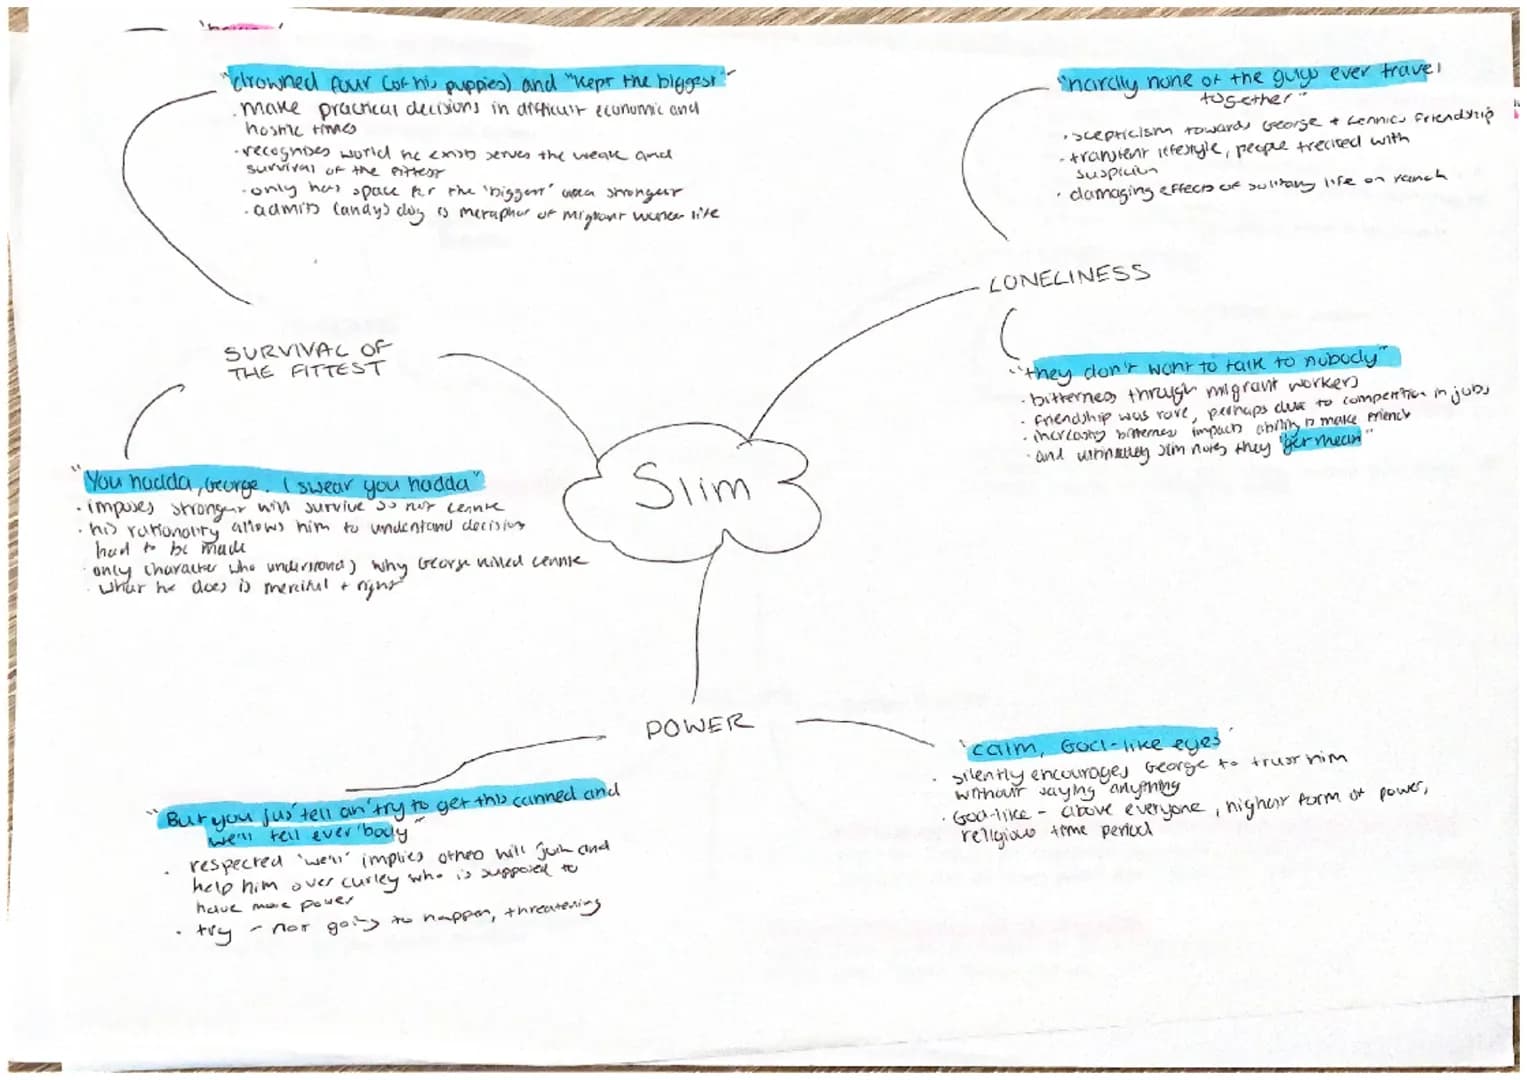 Slim
SURVIVAL OF
THE FITTEST
"drowned four (of his puppies) and "kept the biggest"
. make practical decisions in difficult economic and
hostile times
. recognises world he exists serves the weak and
survival of the fittest
. only has space for the 'biggest' and strongest
. admits Candys dog is metaphor of migrant worker life
"You hadda, George. I swear you hadda"
. imposes stronger will survive so not Lennie
. his rationality allows him to understand decision
had to be made
. only character who understands why George killed Lennie
. what he does is merciful + right
LONELINESS
"hardly none of the guys ever travel
together"
. scepticism towards George + Lennies friendship
. transient lifestyle, people treated with
suspicion
. damaging effects of solitary life on ranch
"they don't want to talk to nobody"
. bitterness through migrant workers
. friendship was rare, perhaps due to competition in jobs
. increasing bitterness impacts ability to make friends
. and ultimately Slim notes they "get mean"
POWER
"But you jus' tell an' try to get this canned and
we'll tell ever'body"
. respected 'we'll' implies others will join and
help him over curley who is supposed to
have more power
. try - not going to happen, threatening
"calm, God-like eyes"
. silently encourages George to trust him
without saying anything
. God-like - above everyone, highest form of power,
religious time period